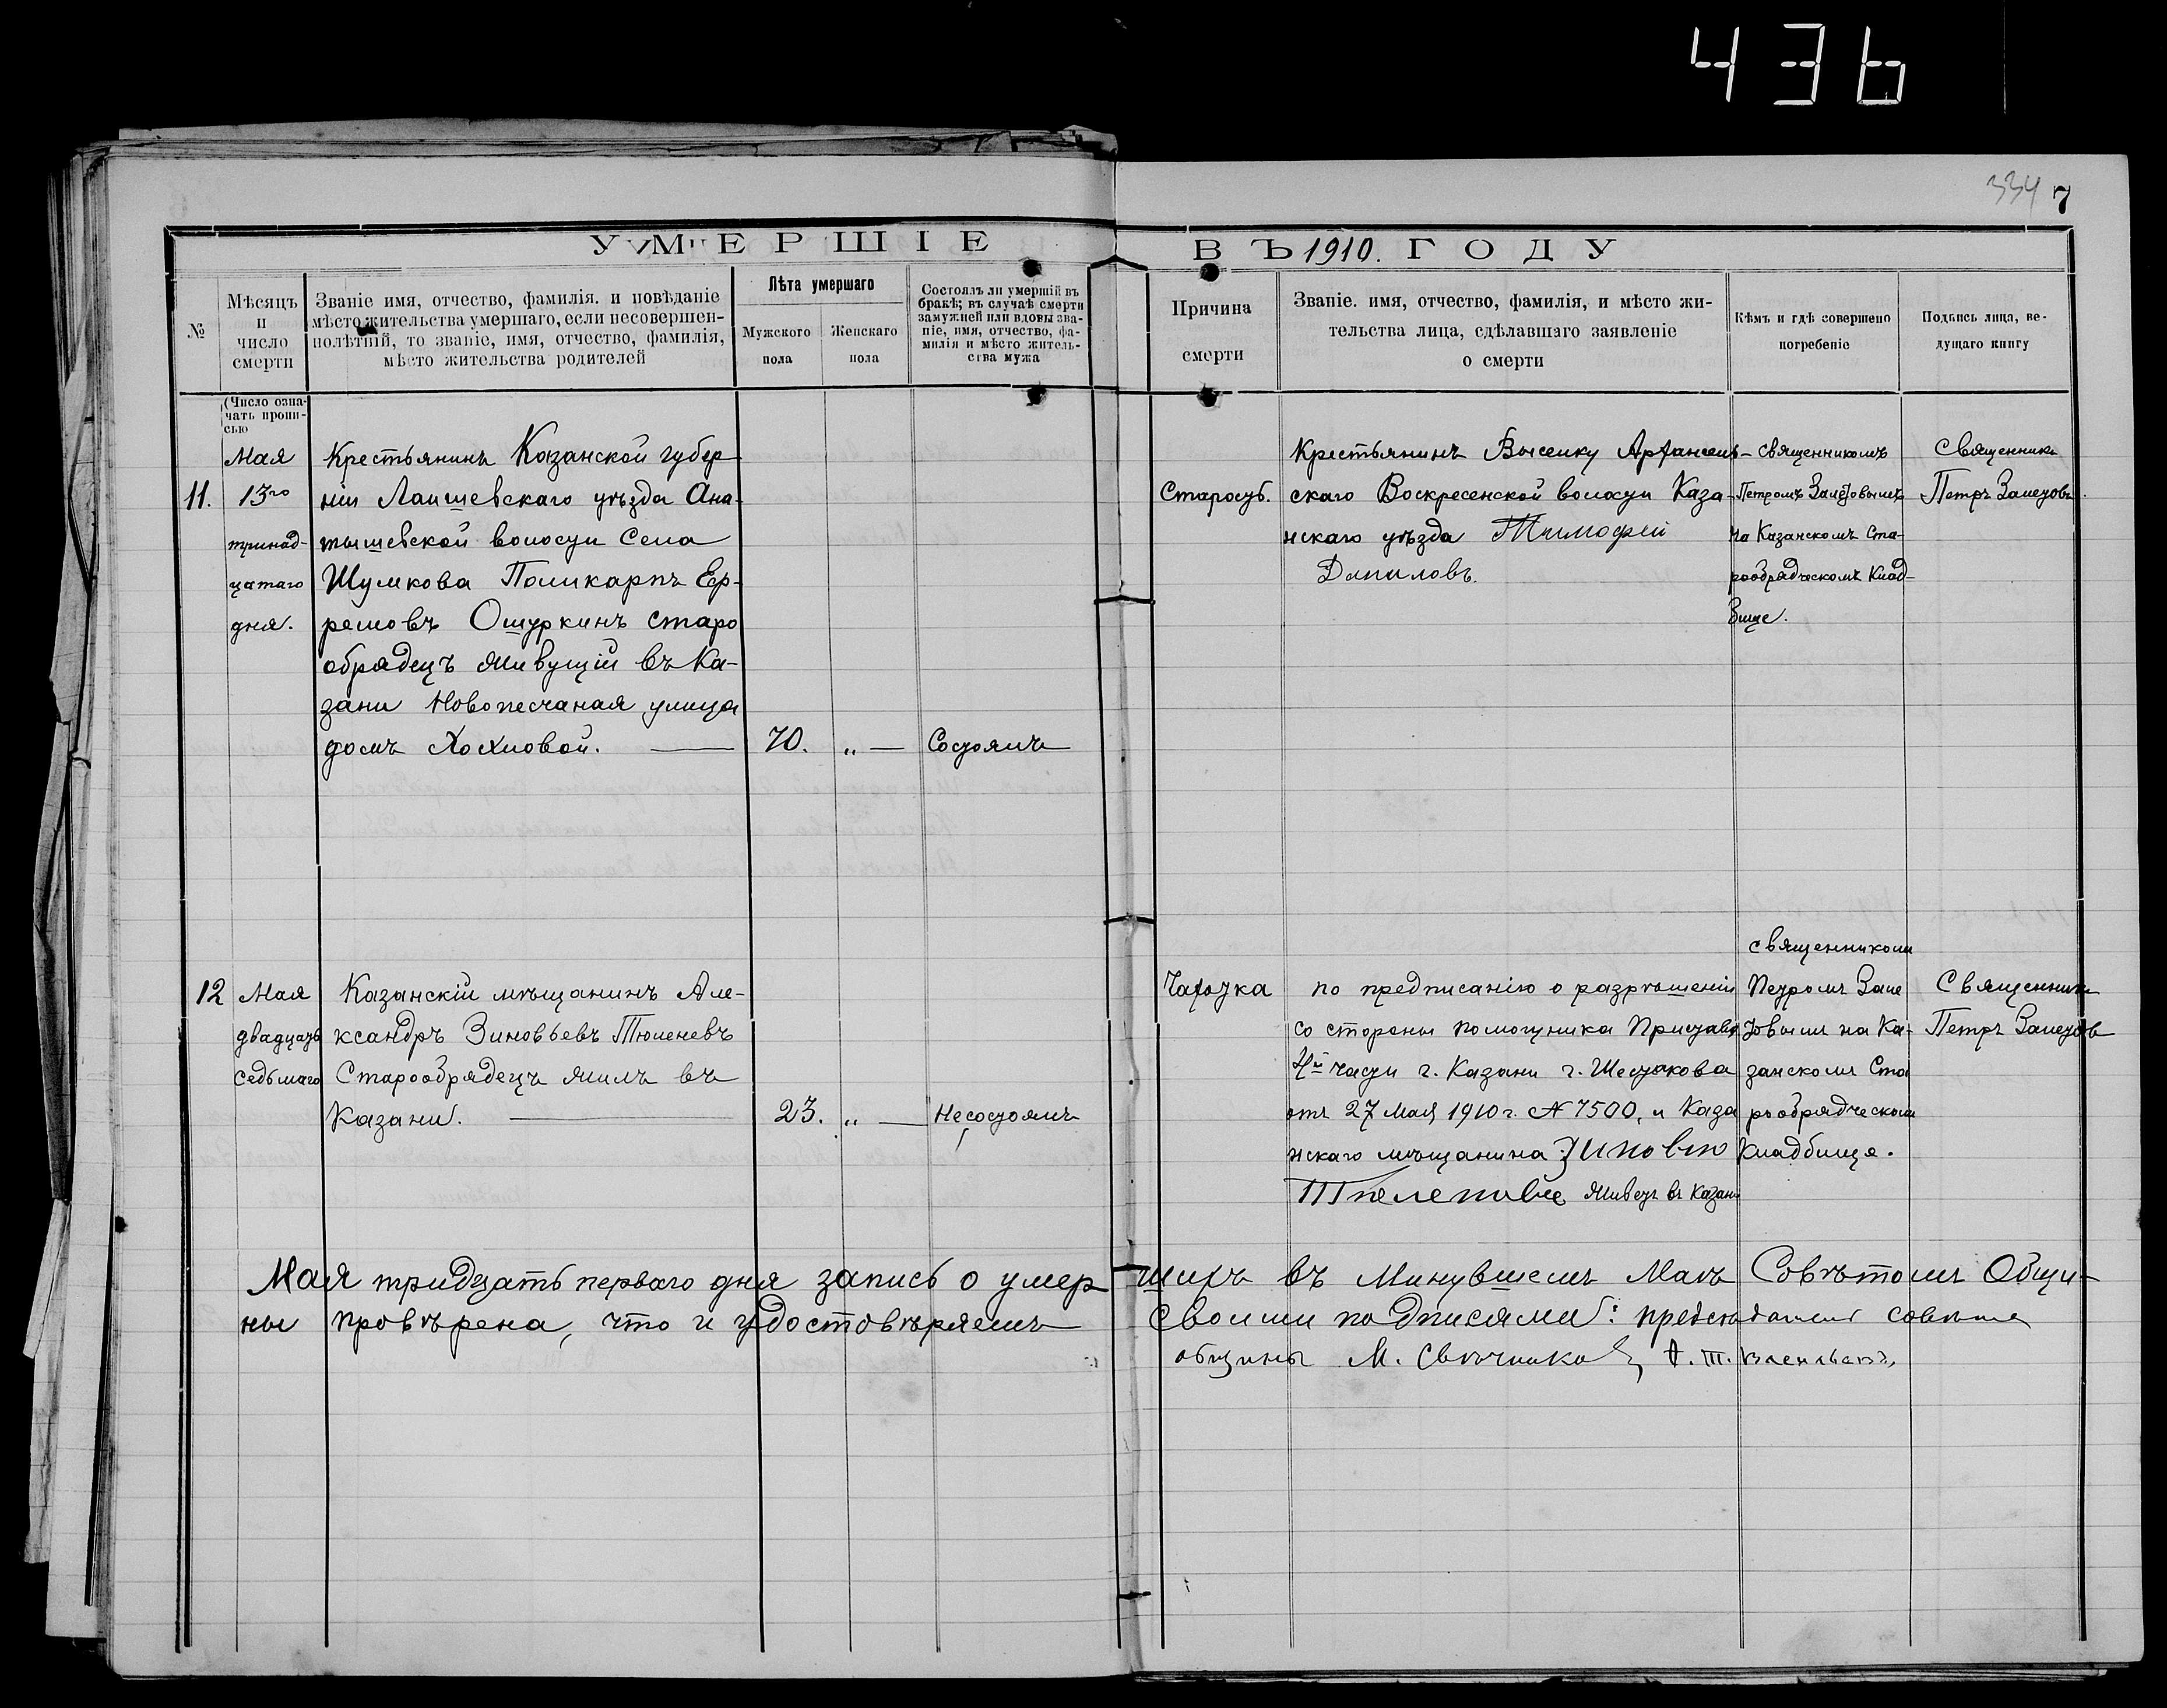 436
334 7
УМЕРШІЕ ВЪ 1910. ГОДУ
№
Мѣсяцъ
и
число
смерти
Званіе имя, отчество, фамилія. и повѣданіе
мѣсто жительства умершаго, если несовершен-
нолѣтній, то званіе, имя, отчество, фамилія,
мѣсто жительства родителей
Лѣта умершаго
Мужского
пола
Женскаго
пола
Состоялъ ли умершій въ
бракѣ; въ случаѣ смерти
замужней или вдовы зва-
ніе, имя, отчество, фа-
милія и мѣсто житель-
ства мужа
Причина
смерти
Званіе. имя, отчество, фамилія, и мѣсто жи-
тельства лица, сдѣлавшаго заявленіе
о смерти
Кѣмъ и гдѣ совершено
погребеніе
Подпись лица, ве-
дущаго книгу
(Число озна-
чать пропи-
сью
11.
Мая
13го
тринад-
цатаго
дня.
Крестьянинъ Казанской губер
ніи Лаишевскаго уѣзда Ана-
тышевской волости Села
Шумкова Поликарпъ Еф-
ремовъ Ошуркинъ старо
обрядецъ живущій въ Ка-
зани Новопесчаная улица
домъ Хохловой.
70.
„ —
Состоялъ
Старость.
Крестьянинъ Выселку Архангель-
скаго Воскресенской волости Каза-
нскаго уѣзда Тимофей
Даниловъ.
священникомъ
Петромъ Залетовымъ
на Казанскомъ Ста-
рообрядческомъ Клад-
бище.
Священникъ
Петръ Залетовъ.
12
Мая
двадцать
седьмаго
Казанскій мѣщанинъ Але-
ксандръ Зиновьевъ Тюленевъ
Старообрядецъ жилъ въ
Казани.
23.
„ —
Несостоялъ
Чахотка
по предписанію о разрѣшеніи
со стороны помощника Пристава
4й части г. Казани г. Шестакова
отъ 27 мая 1910 г. № 7500, и Каза
нскаго мѣщанина Зиновію
Тюленеве живетъ въ Казани
священникомъ
Петромъ Зале
товымъ на Ка-
занскомъ Ста
рообрядческомъ
Кладбище.
Священникъ
Петръ Залетовъ
Мая тридцать перваго дня запись о умер шихъ въ Минувшемъ Маѣ Совѣтомъ Общи-
ны провѣрена, что и удостовѣряемъ своими подписями: председатель совета
общины М. Свечников,